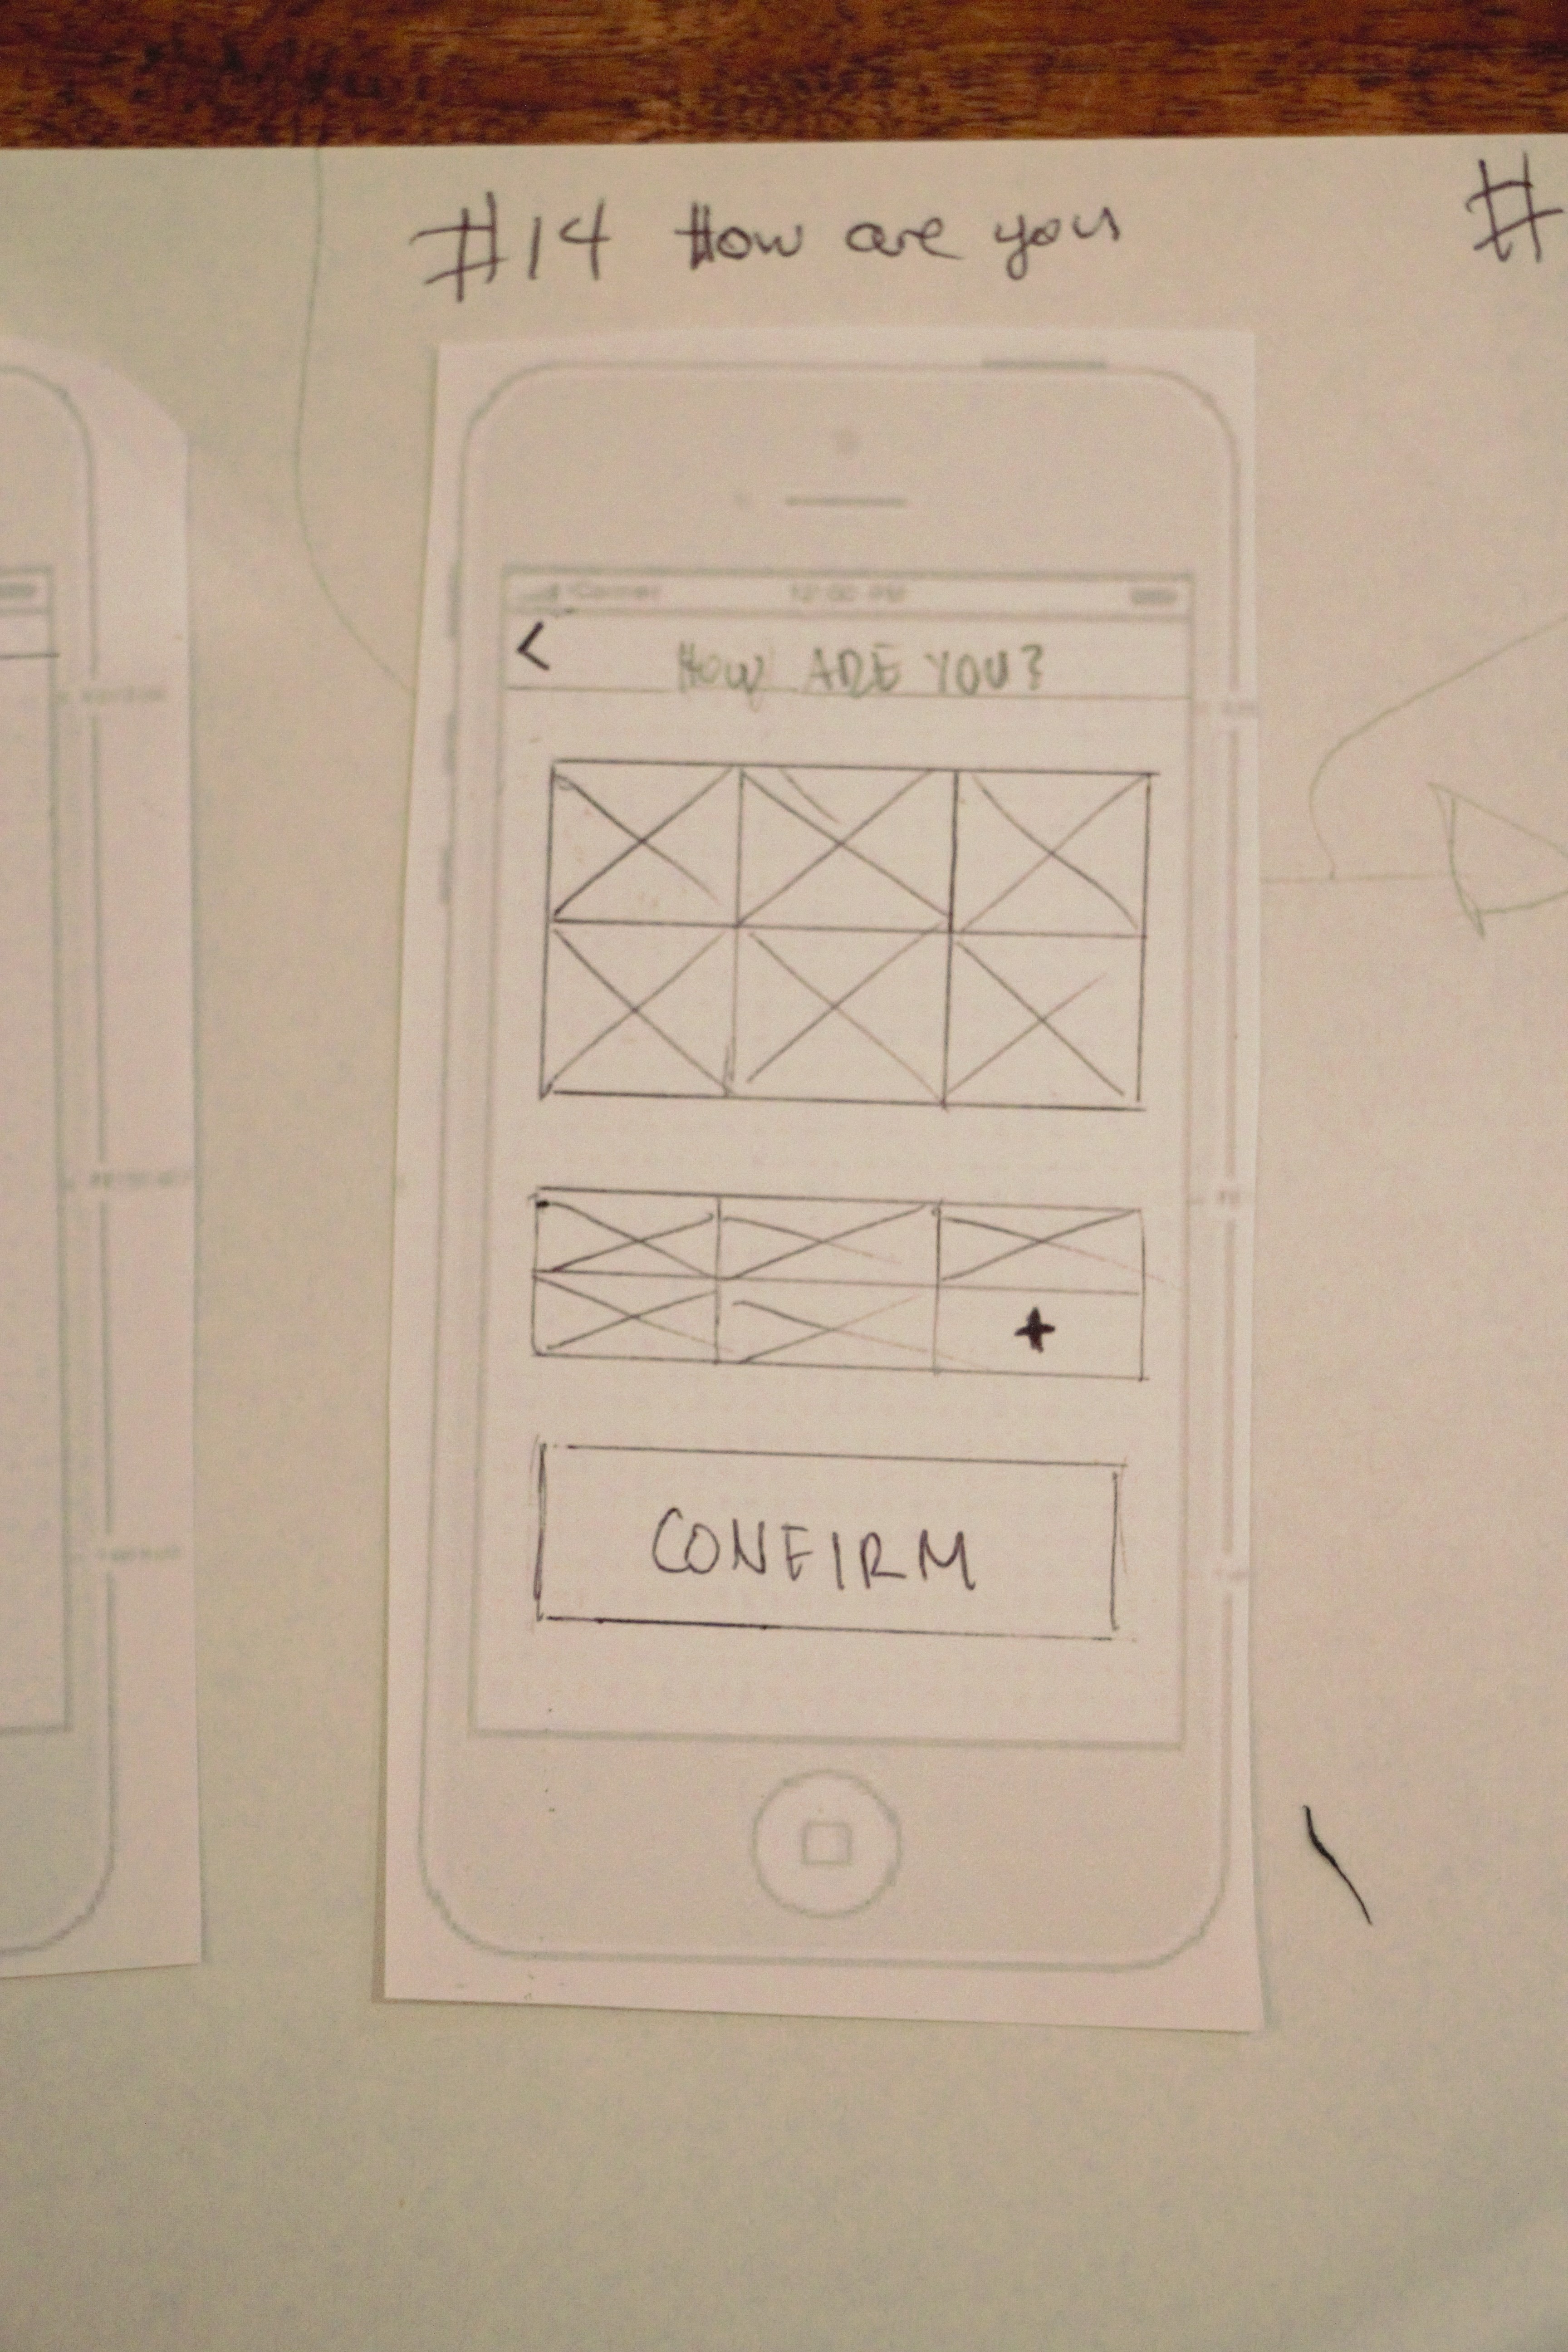 #14 How are you
#
12:00 PM
<
HOW ARE YOU?
+
CONFIRM